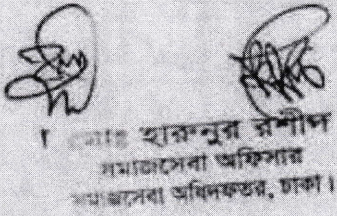 মোঃ হারুনুর রশীদ
সমাজসেবা অফিসার
সমাজসেবা অধিদফতর, ঢাকা।